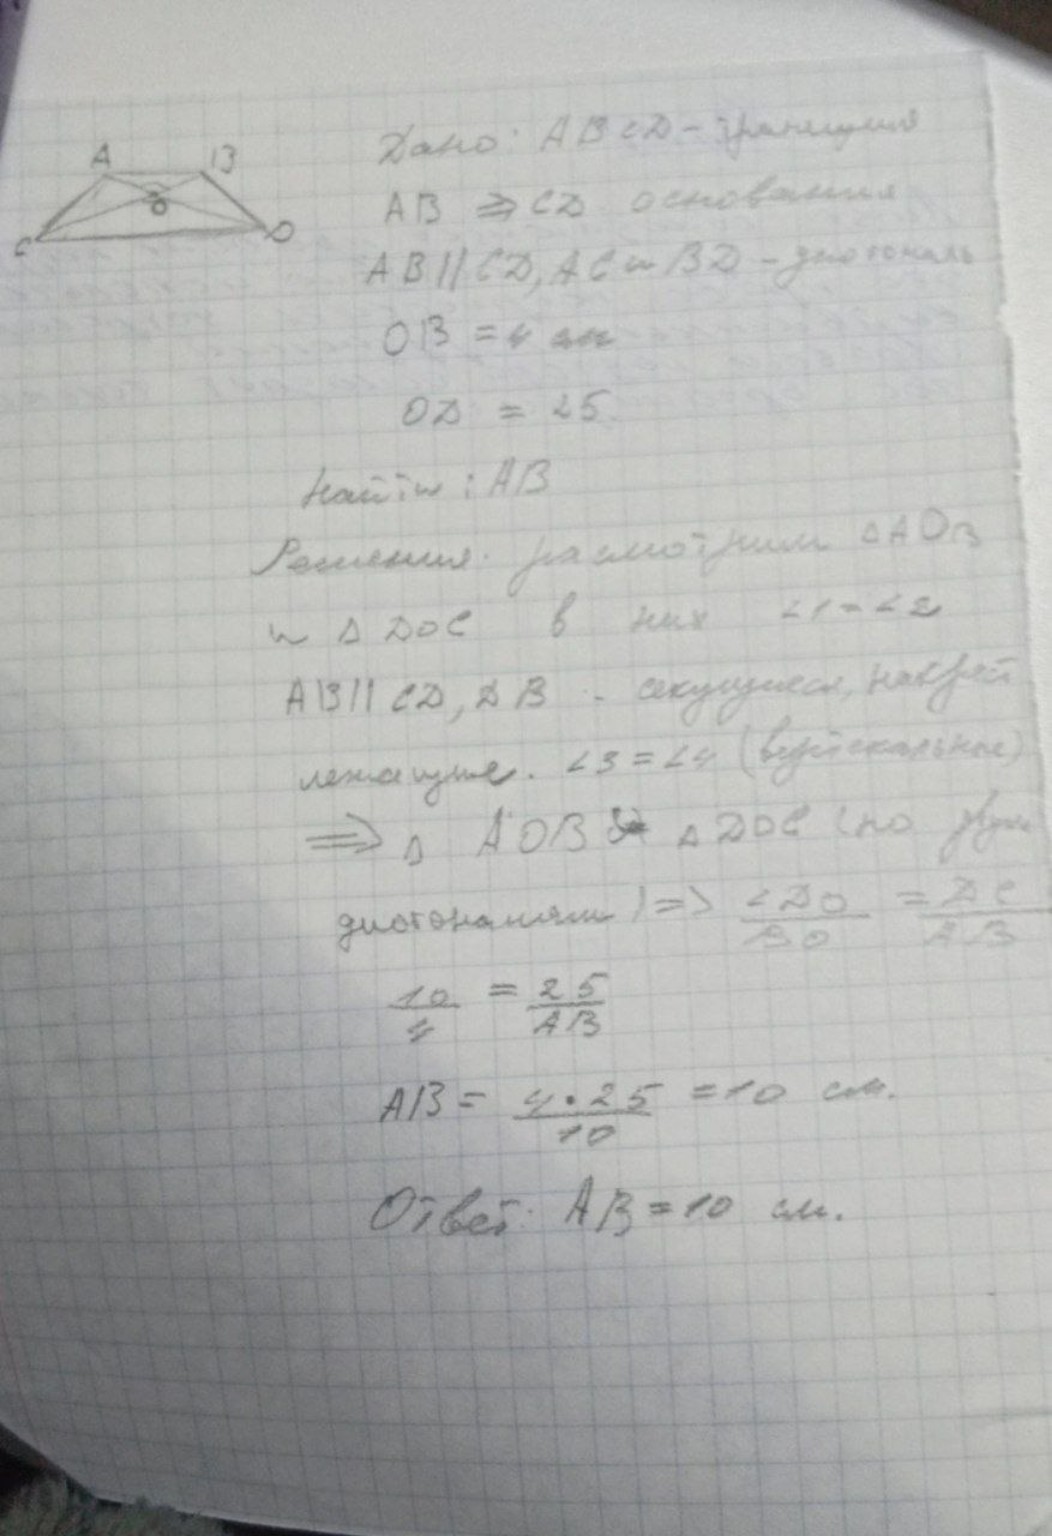 A B
O
C D
Дано: ABCD - трапеция
AB и CD основания
AB || CD, AC и BD - диогональ
OB = 4 см
OD = 25
Найти : AB
Решения. расмотрим ΔAOB
и Δ DOC в них ∠1 = ∠2
AB || CD, DB - секущиеся, накрест
лежащие. ∠3 = ∠4 (вертикальные)
=> Δ AOB Δ DOC (по двум
диогоналям) => DO/BO = DC/AB
10/4 = 25/AB
AB = 4 · 25/10 = 10 см.
Ответ: AB = 10 см.